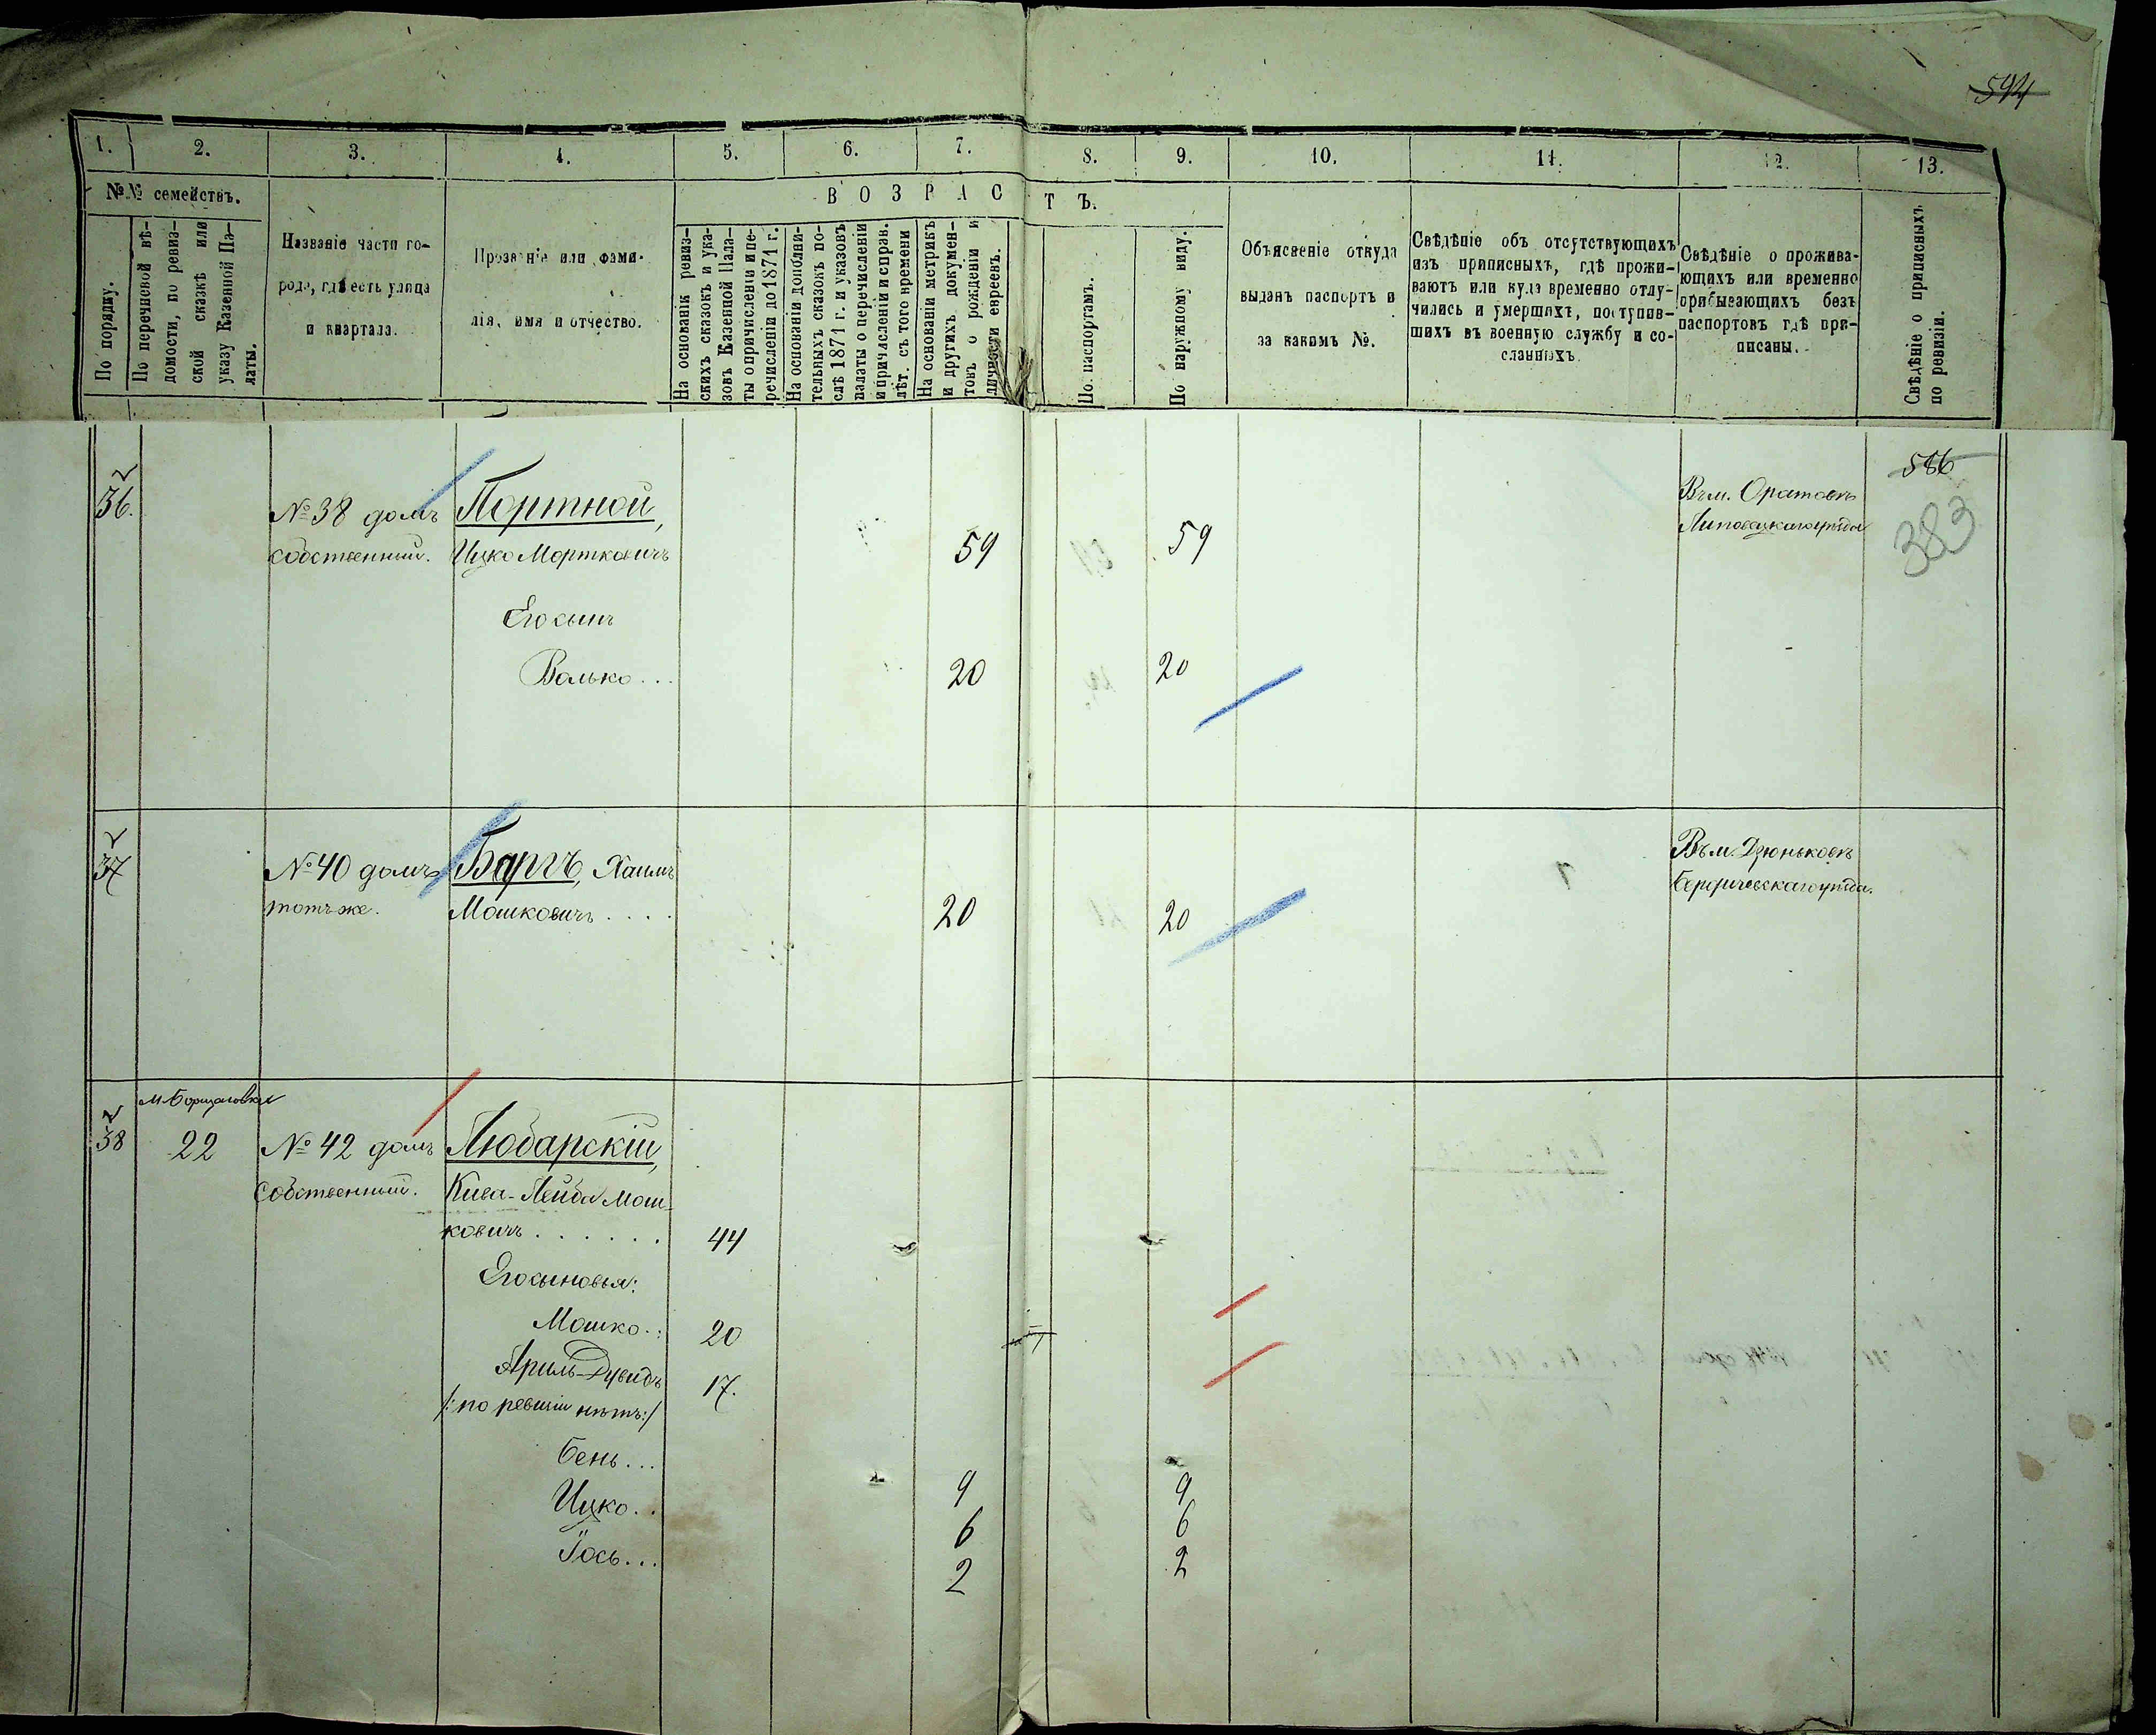 594
1. 2. 3. 4. 5. 6. 7. 8. 9. 10. 11. 12. 13.
№№ семействъ.
В О З Р А С Т Ъ.
По порядку.
По перечневой вѣ-
домости, по ревиз-
ской сказкѣ или
указу Казенной Па-
латы.
Названіе части го-
рода, гдѣ есть улица
и квартала.
Прозваніе или фами-
лія, имя и отчество.
На основаніи ревиз-
скихъ сказокъ и ука-
зовъ Казенной Пала-
ты о причисленіи и пе-
речисленіи до 1871 г.
На основаніи дополни-
тельныхъ сказокъ по-
слѣ 1871 г. и указовъ
палаты о перечисленіи
и причисленіи и справ.
лѣт. съ того времени
На основаніи метрикъ
и другихъ докумен-
товъ о рожденіи и
личности евреевъ.
По паспортамъ.
По наружному виду.
Объясненіе откуда
выданъ паспортъ и
за какимъ №.
Свѣдѣніе объ отсутствующихъ
изъ приписныхъ, гдѣ прожи-
ваютъ или куда временно отлу-
чились и умершихъ, поступив-
шихъ въ военную службу и со-
сланныхъ.
Свѣдѣніе о прожива-
ющихъ или временно
прибывающихъ безъ
паспортовъ гдѣ при-
писаны.
Свѣдѣніе о приписныхъ
по ревизіи.
586
383
36.
№ 38 домъ
собственный.
Портной,
Ицко Мортковичъ 59 59
Въ м. Оратовѣ
Липовецкаго уѣзда
Его сынъ
Волько... 20 20
37
№ 40 домъ
тотъ же.
Баргъ, Хаимъ
Мошковичъ.... 20 20
Въ м. Дзюньковѣ
Бердичевскаго уѣзда.
м. Борщаговки
38 22 № 42 домъ
Собственный.
Любарскій,
Кива-Лейба Мош-
ковичъ...... 44
Его сыновья:
Мошко.. 20
Ариль-Дувидъ 17.
/: по ревизіи нѣтъ:/
Бень... 9 9
Ицко.. 6 6
Іось... 2 2